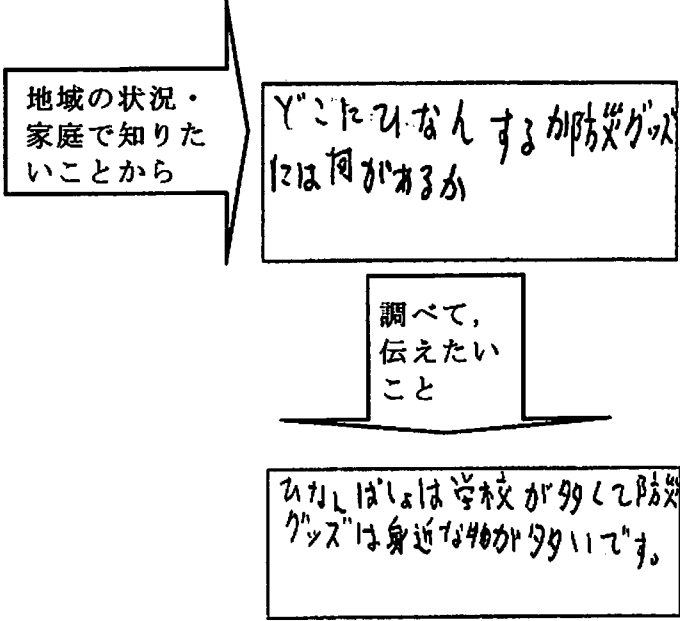 地域の状況・
家庭で知りた
いことから
どこにひなんするか防災グッズ
には何があるか
調べて，
伝えたい
こと
ひなんばしょは学校が多くて防災
グッズは身近な物が多いです。